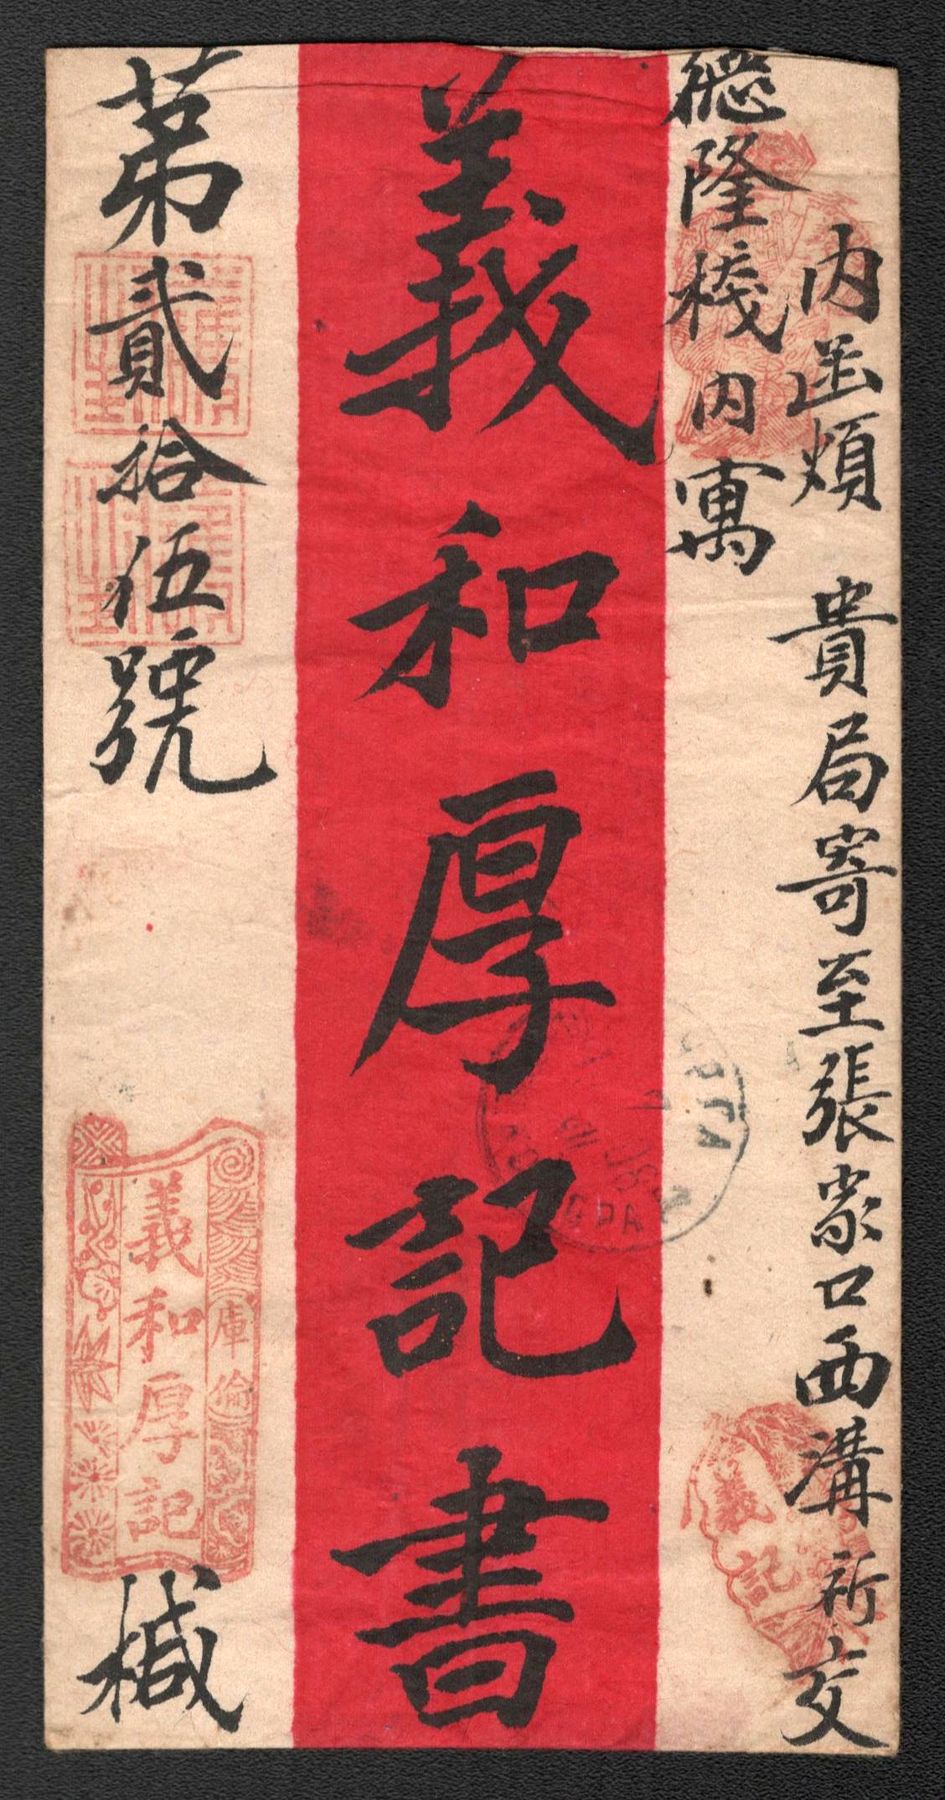 內函煩 貴局寄至張家口西溝祈交
德隆棧內寓
義和厚記書
第貳拾伍號
緘
庫倫
義和厚記
義記